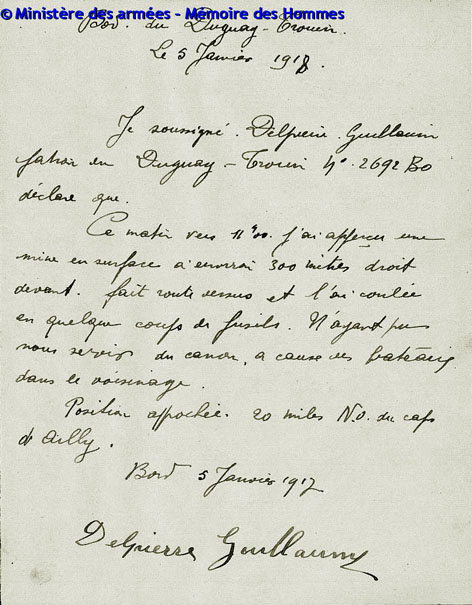 © Ministère des armées - Mémoire des Hommes
Bord du Duguay-Trouin.
Le 5 Janvier 1918.
Je soussigné. Delpierre Guillaum
patron du Duguay-Trouin N° 2692 Bo
déclare que.
Ce matin vers 11h00. j'ai apperçu une
mine en surface a environ 300 mètres droit
devant. fait route dessus et l'ai coulée
en quelque coups de fusils. N'ayant pu
nous servir du canon, a cause des bateaux
dans le voisinage.
Position approchée. 20 miles N.O. du cap
d'Ailly.
Bord 5 Janvier 1917
Delpierre Guillaume